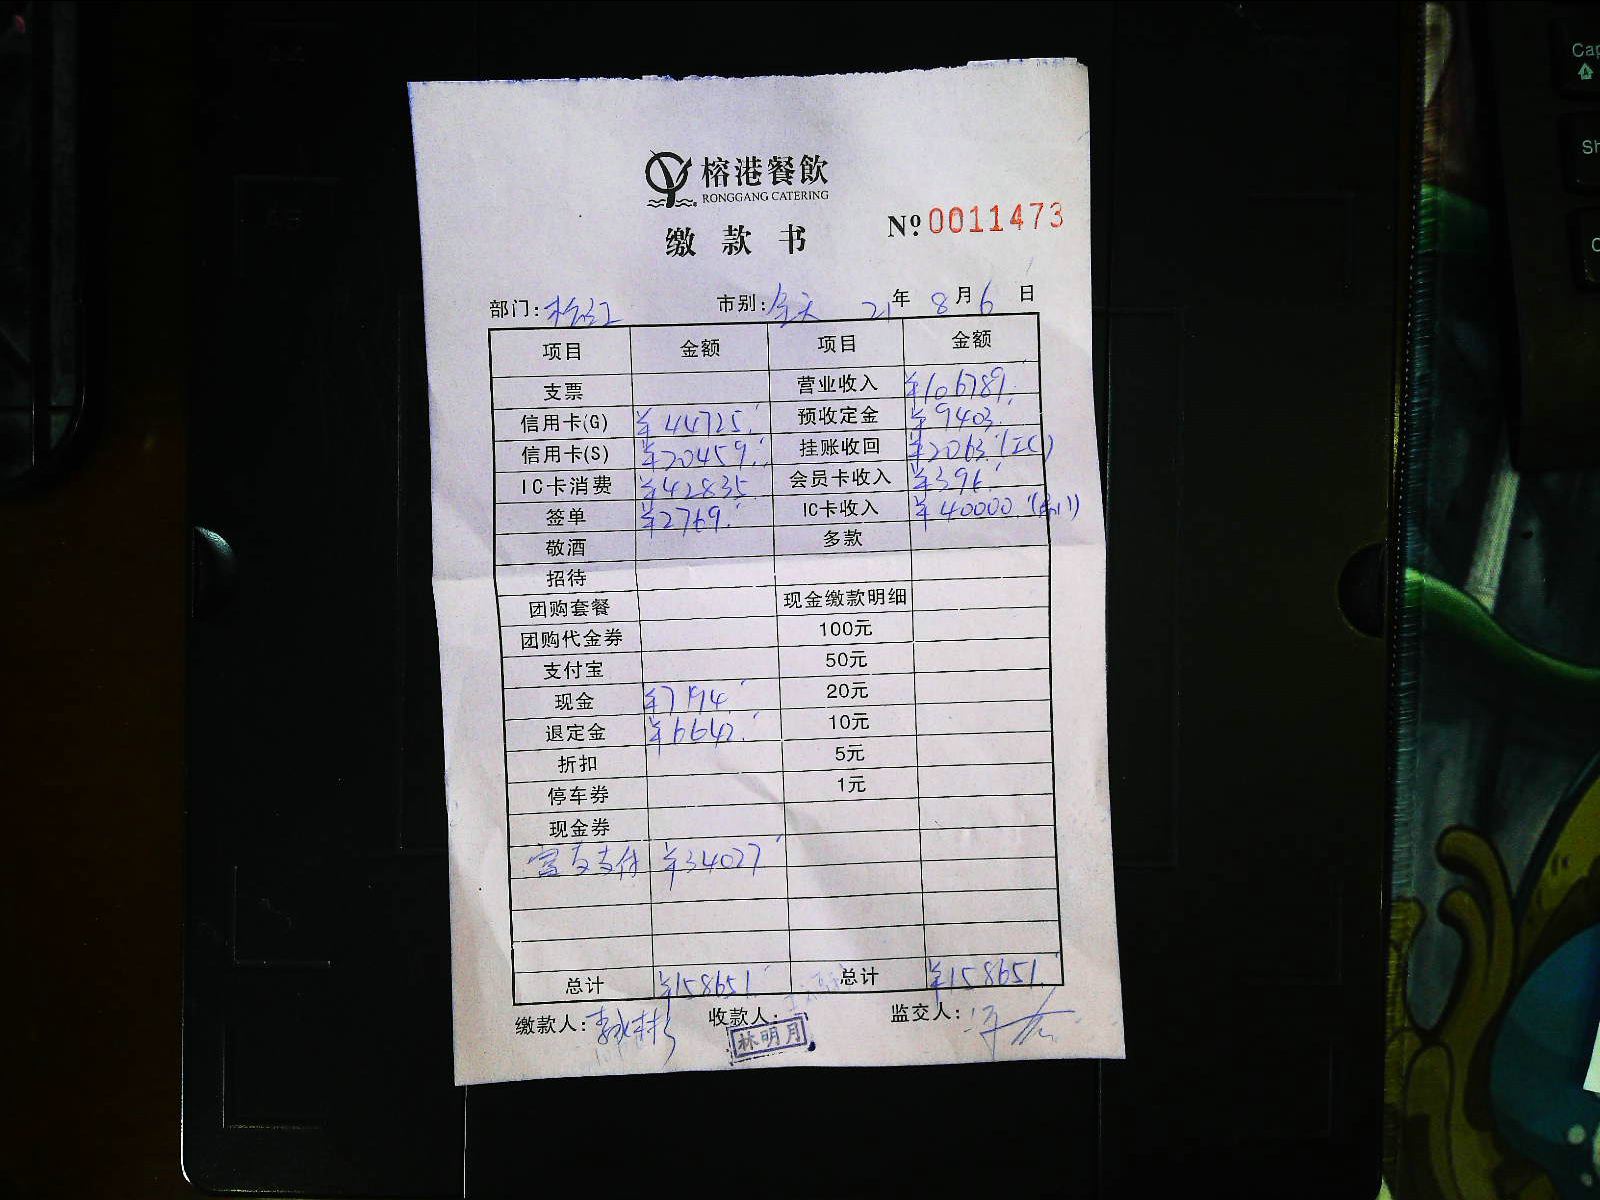 榕港餐飲
RONGGANG CATERING
缴款书 Nº 0011473
部门: 市别:全天 21年 8月6日
项目 金额 项目 金额
支票 营业收入 ¥106789.
信用卡(G) ¥44725. 预收定金 ¥9403.
信用卡(S) ¥20459. 挂账收回 ¥2063.(IC)
IC卡消费 ¥42835. 会员卡收入 ¥396.
签单 ¥2769. IC卡收入 ¥40000.
敬酒 多款
招待
团购套餐 现金缴款明细
团购代金券 100元
支付宝 50元
现金 ¥7194. 20元
退定金 ¥6642. 10元
折扣 5元
停车券 1元
现金券
富友支付 ¥34027
总计 ¥158651 总计 ¥158651.
缴款人: 收款人: 监交人:
林明月
Cap
Sh